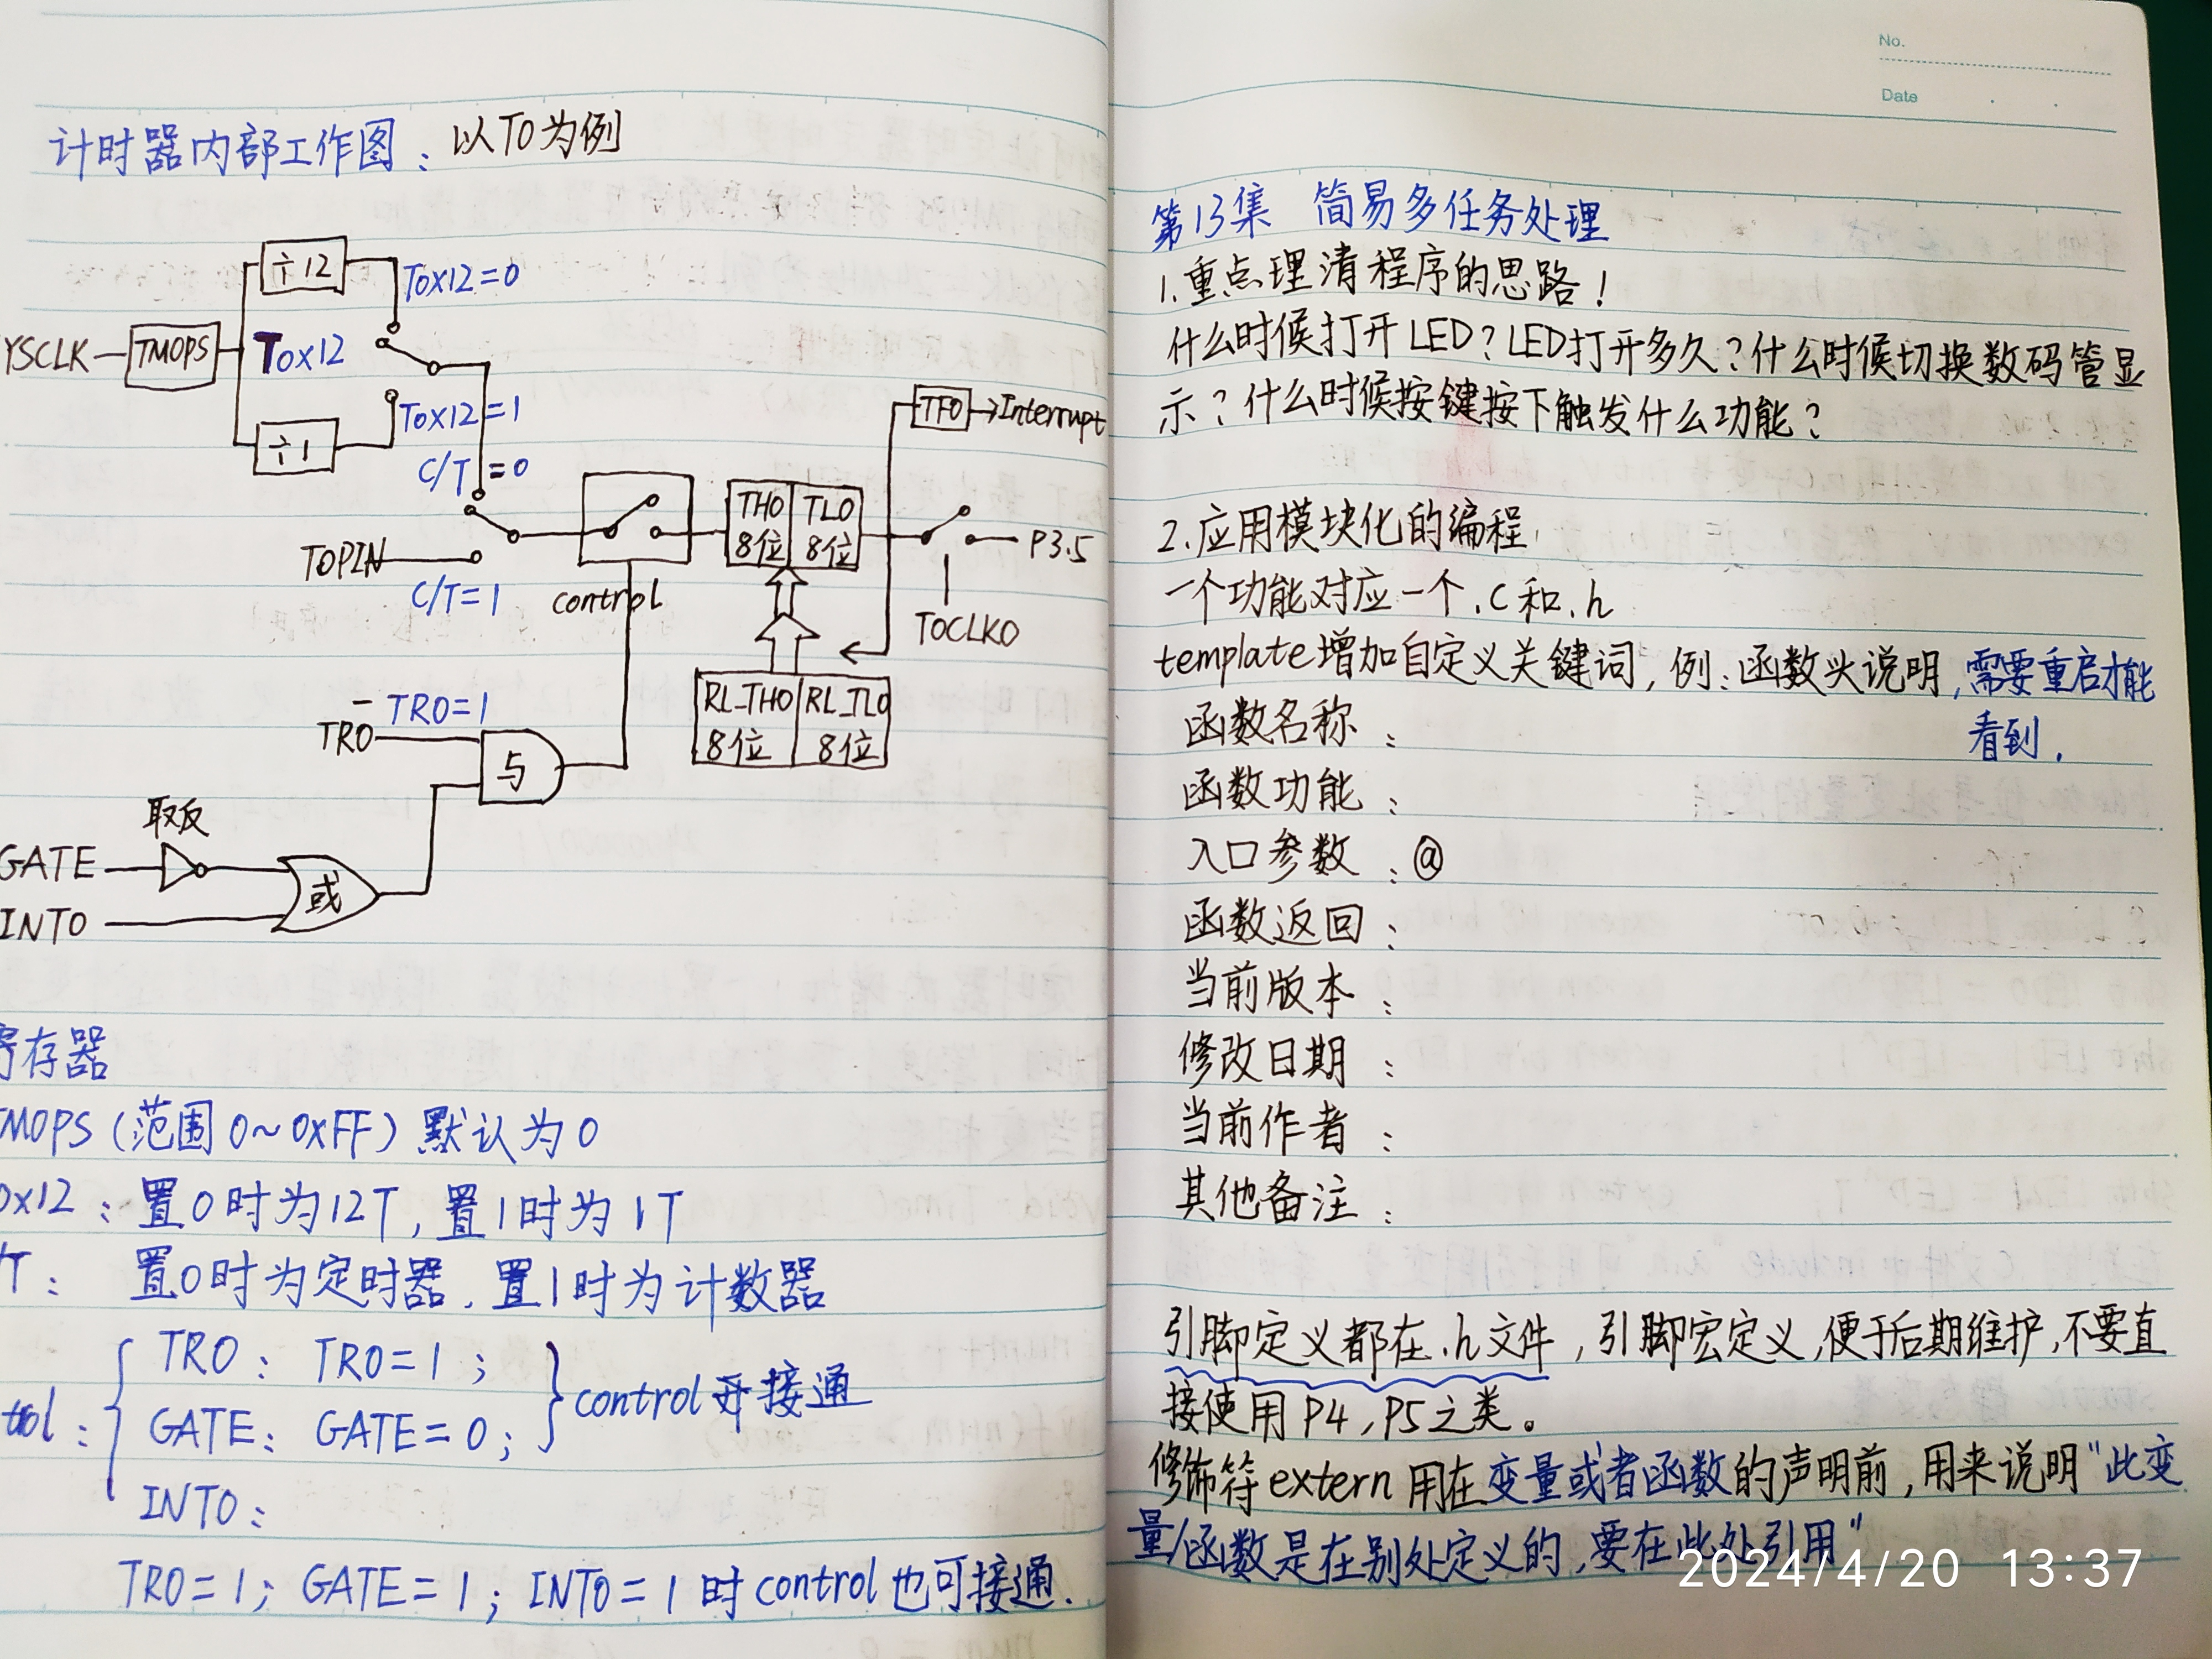 计时器内部工作图：以T0为例
÷12
T0x12=0
YSCLK
TM0PS
T0x12
÷1
T0x12=1
C/T=0
TF0
Interrupt
TH0
8位
TL0
8位
T0PIN
C/T=1
control
P3.5
T0CLKO
RL_TH0
8位
RL_TL0
8位
TR0=1
TR0
与
取反
GATE
或
INT0
寄存器
M0PS(范围0~0xFF)默认为0
0x12：置0时为12T，置1时为1T
/T：置0时为定时器，置1时为计数器
TR0：TR0=1；
GATE：GATE=0；
control开接通
trol：
INT0：
TR0=1；GATE=1；INT0=1时control也可接通.
No.
Date
第13集 简易多任务处理
1.重点理清程序的思路！
什么时候打开LED？LED打开多久？什么时候切换数码管显
示？什么时候按键按下触发什么功能？
2.应用模块化的编程
一个功能对应一个.c和.h
template增加自定义关键词，例：函数头说明，需要重启才能
看到.
函数名称：
函数功能：
入口参数：@
函数返回：
当前版本：
修改日期：
当前作者：
其他备注：
引脚定义都在.h文件，引脚宏定义，便于后期维护，不要直
接使用P4，P5之类。
修饰符extern用在变量或者函数的声明前，用来说明“此变
量/函数是在别处定义的，要在此处引用”
2024/4/20 13:37